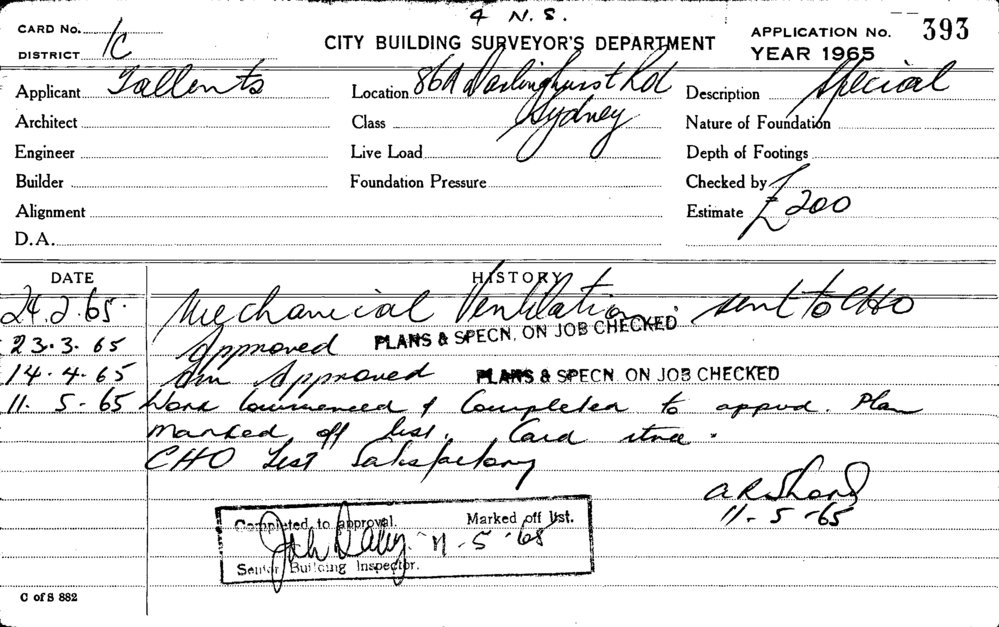 4 N.S.
CARD No. CITY BUILDING SURVEYOR'S DEPARTMENT APPLICATION No. 393
DISTRICT 1C YEAR 1965
Applicant Tallents Location 86A Darlinghurst Rd Description Special
Architect Class Sydney Nature of Foundation
Engineer Live Load Depth of Footings
Builder Foundation Pressure Checked by
Alignment Estimate £200
D.A.
DATE HISTORY
24.2.65. Mechanical Ventilation. sent to CHO
23.3.65 Approved PLANS & SPECN. ON JOB CHECKED
14.4.65 Am Approved PLANS & SPECN. ON JOB CHECKED
11.5-65 Work Commenced & Completed to appvd. Plan
marked off list. Card
CHO Test Satisfactory
11-5-65
Completed to approval. Marked off list.
11-5-65
Senior Building Inspector.
C of S 882